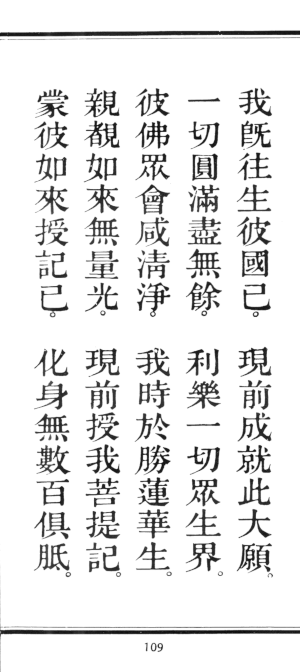 我旣往生彼國已。
現前成就此大願。
一切圓滿盡無餘。
利樂一切眾生界。
彼佛眾會咸淸淨。
我時於勝蓮華生。
親覩如來無量光。
現前授我菩提記。
蒙彼如來授記已。
化身無數百俱胝。
109